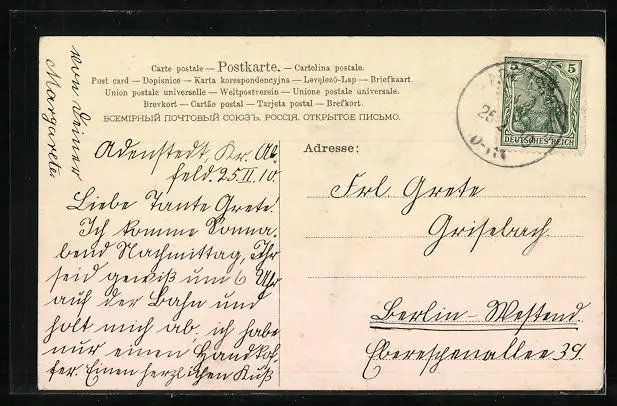 Carte postale — Postkarte. — Cartolina postale.
Post card — Dopisnice — Karta korespondencyjna — Levelező-Lap — Briefkaart.
Union postale universelle — Weltpostverein — Unione postale universale.
Brevkort — Cartão postal — Tarjeta postal — Brefkort.
ВСЕМІРНЫЙ ПОЧТОВЫЙ СОЮЗЪ. РОССІЯ. ОТКРЫТОЕ ПИСЬМО.
5
DEUTSCHES REICH
Adenstedt, Kr. Al-
feld. 25.II.10
Liebe Tante Grete!
Ich komme Sonna-
bend Nachmittag, Ihr
seid gewiß um 6 Uhr
auf der Bahn und
holt mich ab, ich habe
nur einen Handkof-
fer. Einen herzlichen Kuß
von Deiner
Margarete.
Adresse:
Frl. Grete
Grisebach.
Berlin-Westend.
Ebereschenallee 39.